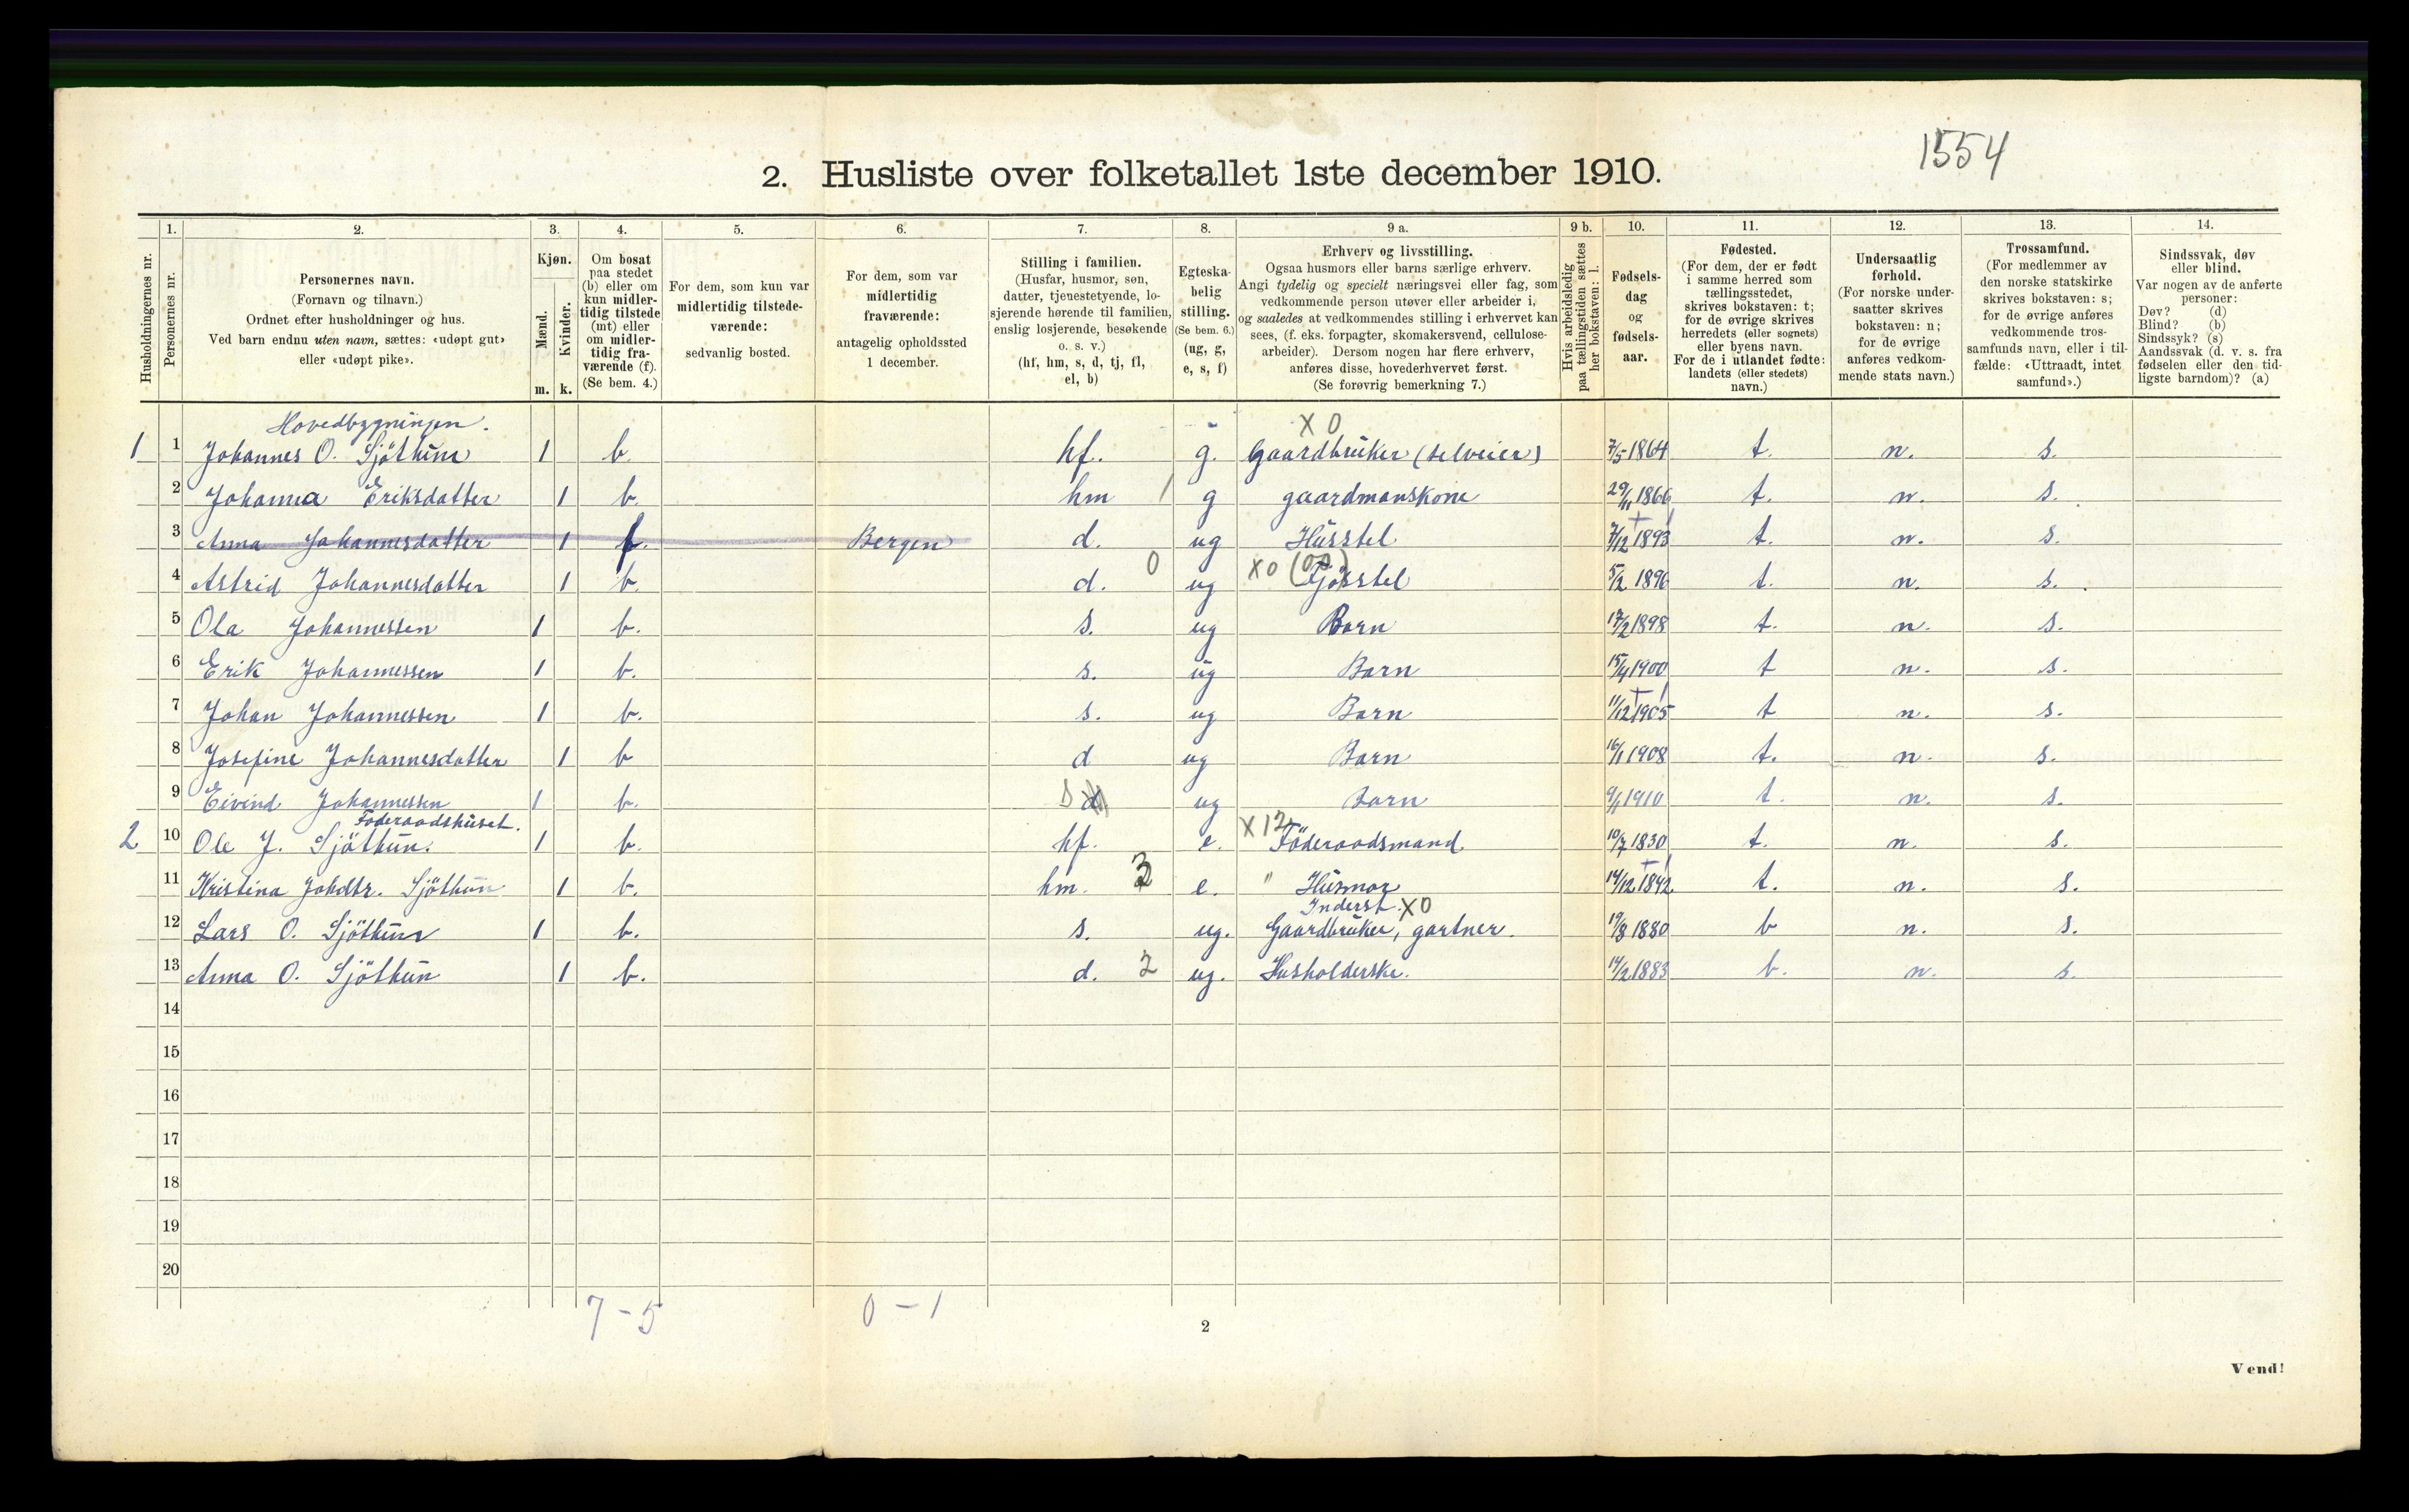 1554
2. Husliste over folketallet 1ste december 1910.
Husholdningernes nr.
1.
Personernes nr.
2.
Personernes navn.
(Fornavn og tilnavn.)
Ordnet efter husholdninger og hus.
Ved barn endnu uten navn, sættes: «udøpt gut»
eller «udøpt pike».
3.
Kjøn.
Mænd.
Kvinder.
m. k.
4.
Om bosat
paa stedet
(b) eller om
kun midler-
tidig tilstede
(mt) eller
om midler-
tidig fra-
værende (f).
(Se bem. 4.)
5.
For dem, som kun var
midlertidig tilstede-
værende:
sedvanlig bosted.
6.
For dem, som var
midlertidig
fraværende:
antagelig opholdssted
1 december.
7.
Stilling i familien.
(Husfar, husmor, søn,
datter, tjenestetyende, lo-
sjerende hørende til familien,
enslig losjerende, besøkende
o. s. v.)
(hf, hm, s, d, tj, fl,
el, b)
8.
Egteska-
belig
stilling.
(Se bem. 6.)
(ug, g,
e, s, f)
9 a.
Erhverv og livsstilling.
Ogsaa husmors eller barns særlige erhverv.
Angi tydelig og specielt næringsvei eller fag, som
vedkommende person utøver eller arbeider i,
og saaledes at vedkommendes stilling i erhvervet kan
sees, (f. eks. forpagter, skomakersvend, cellulose-
arbeider). Dersom nogen har flere erhverv,
anføres disse, hovederhvervet først.
(Se forøvrig bemerkning 7.)
9 b.
Hvis arbeidsledig
paa tællingstiden sættes
her bokstaven: l.
10.
Fødsels-
dag
og
fødsels-
aar.
11.
Fødested.
(For dem, der er født
i samme herred som
tællingsstedet,
skrives bokstaven: t;
for de øvrige skrives
herredets (eller sognets)
eller byens navn.
For de i utlandet fødte:
landets (eller stedets)
navn.)
12.
Undersaatlig
forhold.
(For norske under-
saatter skrives
bokstaven: n;
for de øvrige
anføres vedkom-
mende stats navn.)
13.
Trossamfund.
(For medlemmer av
den norske statskirke
skrives bokstaven: s;
for de øvrige anføres
vedkommende tros-
samfunds navn, eller i til-
fælde: «Uttraadt, intet
samfund».)
14.
Sindssvak, døv
eller blind.
Var nogen av de anførte
personer:
Døv? (d)
Blind? (b)
Sindssyk? (s)
Aandssvak (d. v. s. fra
fødselen eller den tid-
ligste barndom)? (a)
Hovedbygningen. X 0
1 1 Johannes O. Sjöthun 1 b. hf. g. Gaardbruker (selveier) 7/5 1864 t. n. s.
2 Johanna Eriksdatter 1 b. hm 1 g gaardmanskone 29/11 1866 t. n. s.
3 Anna Johannesdatter 1 f. Bergen d. ug Husstel 7/12 1893 t. n. s.
0 X0 (00)
4 Astrid Johannesdatter 1 b. d. ug Fjösstel 5/2 1896 t. n. s.
5 Ola Johannessen 1 b. s. ug Barn 17/2 1898 t. n. s.
6 Erik Johannessen 1 b. s. ug Barn 15/4 1900 t n. s.
7 Johan Johannessen 1 b. s. ug Barn 11/12 1905 t n. s.
8 Josefine Johannesdatter 1 b d ug Barn 16/1 1908 t. n. s.
9 Eivind Johannessen 1 b. s ug Barn 1910 t. n. s.
Föderaadshuset. X12
2 10 Ole J. Sjöthun. 1 b. hf. e. Föderaadsmand 10/7 1830 t. n. s.
11 Kristina Johdtr. Sjöthun 1 b. hm. 3 e. " Husmor 14/12 1842 t. n. s.
Inderst. X0
12 Lars O. Sjöthun 1 b. s. ug. Gaardbruker, gartner. 19/8 1880 b n. s.
13 Anna O. Sjöthun 1 b. d. 2 ug. Husholderske. 14/2 1883 b. n. s.
14
15
16
17
18
19
20
7 - 5 0 - 1
2
Vend!